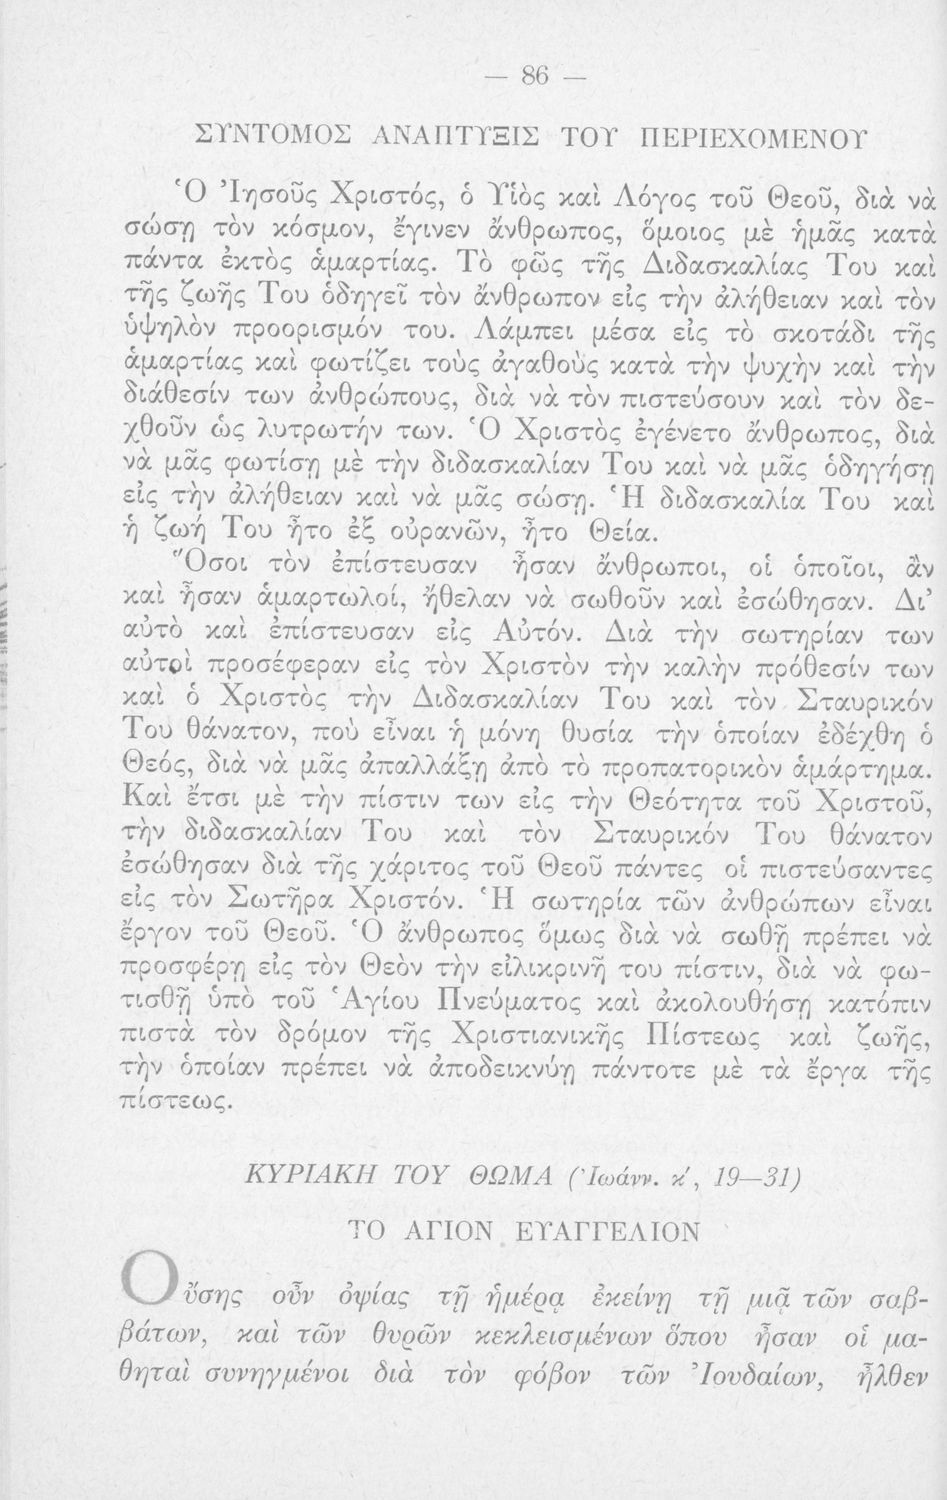 — 86 —
ΣΥΝΤΟΜΟΣ ΑΝΑΠΤΥΞΙΣ ΤΟΥ ΠΕΡΙΕΧΟΜΕΝΟΥ
Ὁ Ἰησοῦς Χριστός, ὁ Υἱὸς καὶ Λόγος τοῦ Θεοῦ, διὰ νὰ
σώσῃ τὸν κόσμον, ἔγινεν ἄνθρωπος, ὅμοιος μὲ ἡμᾶς κατὰ
πάντα ἐκτὸς ἁμαρτίας. Τὸ φῶς τῆς Διδασκαλίας Του καὶ
τῆς ζωῆς Του ὁδηγεῖ τὸν ἄνθρωπον εἰς τὴν ἀλήθειαν καὶ τὸν
ὑψηλὸν προορισμόν του. Λάμπει μέσα εἰς τὸ σκοτάδι τῆς
ἁμαρτίας καὶ φωτίζει τοὺς ἀγαθοὺς κατὰ τὴν ψυχὴν καὶ τὴν
διάθεσίν των ἀνθρώπους, διὰ νὰ τὸν πιστεύσουν καὶ τὸν δε-
χθοῦν ὡς λυτρωτήν των. Ὁ Χριστὸς ἐγένετο ἄνθρωπος, διὰ
νὰ μᾶς φωτίσῃ μὲ τὴν διδασκαλίαν Του καὶ νὰ μᾶς ὁδηγήσῃ
εἰς τὴν ἀλήθειαν καὶ νὰ μᾶς σώσῃ. Ἡ διδασκαλία Του καὶ
ἡ ζωή Του ἦτο ἐξ οὐρανῶν, ἦτο Θεία.
Ὅσοι τὸν ἐπίστευσαν ἦσαν ἄνθρωποι, οἱ ὁποῖοι, ἂν
καὶ ἦσαν ἁμαρτωλοί, ἤθελαν νὰ σωθοῦν καὶ ἐσώθησαν. Δι’
αὐτὸ καὶ ἐπίστευσαν εἰς Αὐτόν. Διὰ τὴν σωτηρίαν των
αὐτοὶ προσέφεραν εἰς τὸν Χριστὸν τὴν καλὴν πρόθεσίν των
καὶ ὁ Χριστὸς τὴν Διδασκαλίαν Του καὶ τὸν Σταυρικόν
Του θάνατον, ποὺ εἶναι ἡ μόνη θυσία τὴν ὁποίαν ἐδέχθη ὁ
Θεός, διὰ νὰ μᾶς ἀπαλλάξῃ ἀπὸ τὸ προπατορικὸν ἁμάρτημα.
Καὶ ἔτσι μὲ τὴν πίστιν των εἰς τὴν Θεότητα τοῦ Χριστοῦ,
τὴν διδασκαλίαν Του καὶ τὸν Σταυρικόν Του θάνατον
ἐσώθησαν διὰ τῆς χάριτος τοῦ Θεοῦ πάντες οἱ πιστεύσαντες
εἰς τὸν Σωτῆρα Χριστόν. Ἡ σωτηρία τῶν ἀνθρώπων εἶναι
ἔργον τοῦ Θεοῦ. Ὁ ἄνθρωπος ὅμως διὰ νὰ σωθῇ πρέπει νὰ
προσφέρῃ εἰς τὸν Θεὸν τὴν εἰλικρινῆ του πίστιν, διὰ νὰ φω-
τισθῇ ὑπὸ τοῦ Ἁγίου Πνεύματος καὶ ἀκολουθήσῃ κατόπιν
πιστὰ τὸν δρόμον τῆς Χριστιανικῆς Πίστεως καὶ ζωῆς,
τὴν ὁποίαν πρέπει νὰ ἀποδεικνύῃ πάντοτε μὲ τὰ ἔργα τῆς
πίστεως.
ΚΥΡΙΑΚΗ ΤΟΥ ΘΩΜΑ (Ἰωάνν. κ΄, 19—31)
ΤΟ ΑΓΙΟΝ ΕΥΑΓΓΕΛΙΟΝ
Οὔσης οὖν ὀψίας τῇ ἡμέρᾳ ἐκείνῃ τῇ μιᾷ τῶν σαβ-
βάτων, καὶ τῶν θυρῶν κεκλεισμένων ὅπου ἦσαν οἱ μα-
θηταὶ συνηγμένοι διὰ τὸν φόβον τῶν Ἰουδαίων, ἦλθεν